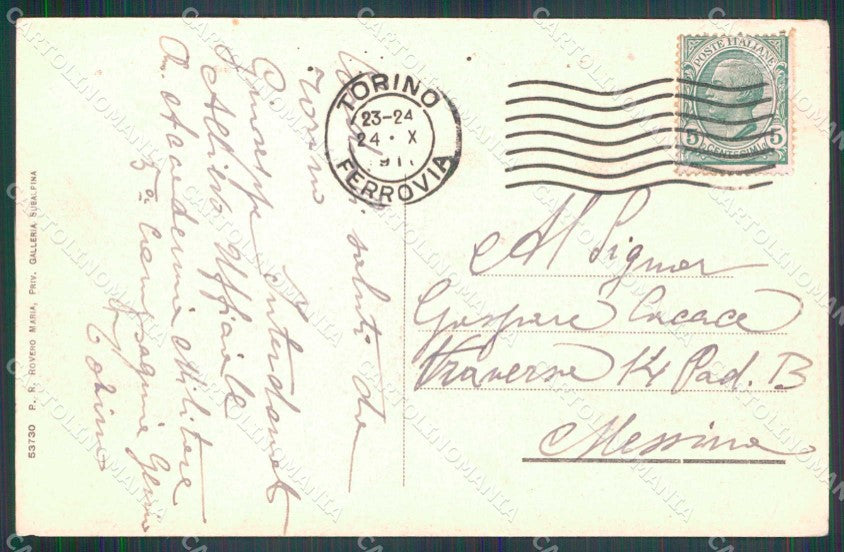 TORINO
23-24
24 · X
191
FERROVIA
POSTE ITALIANE
5 5
CENTESIMI
Al Signor
Gaspare Cacace
Traversa 14 Pad. B
Messina
saluti da
Torino
Giuseppe
Allievo Ufficiale
R. Accademia Militare
5a Compagnia Genio
Torino
53730 P. R. ROVERO MARIA, PRIV. GALLERIA SUBALPINA
CARTOLINOMANIA